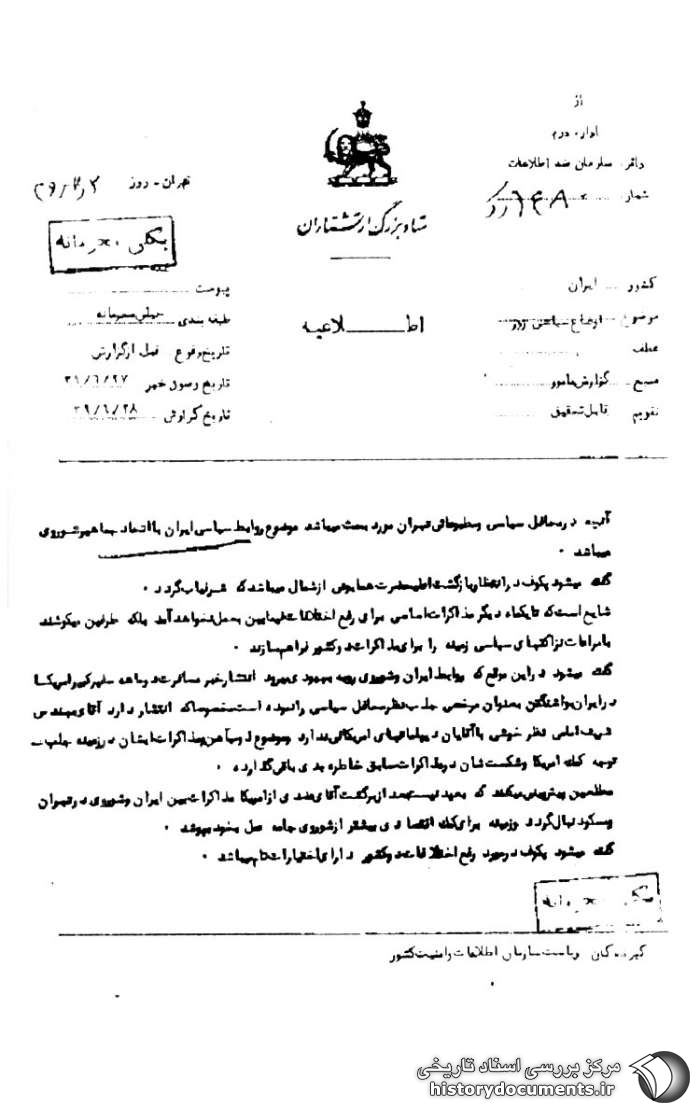 از
اداره دوم
دائره سازمان ضد اطلاعات
شماره
تهران - روز
بکلی محرمانه
شاه بزرگ ارتشتاران
کشور ایران
موضوع اوضاع سیاسی روز
عطف
منبع گزارش مأمور
تقویم قابل تحقیق
اطلاعیه
پیوست
طبقه بندی خیلی محرمانه
تاریخ وقوع قبل از گزارش
تاریخ وصول خبر ۳۹/۶/۲۷
تاریخ گزارش ۳۹/۶/۲۸
آنچه در محافل سیاسی و مطبوعاتی تهران مورد بحث میباشد موضوع روابط سیاسی ایران با اتحاد جماهیر شوروی
میباشد .
گفته میشود پکوف در انتظار بازگشت اعلیحضرت همایونی از شمال میباشد که شرفیاب گردد .
شایع است که تا یکماه دیگر مذاکرات اساسی برای رفع اختلافات فیمابین بعمل نخواهد آمد بلکه طرفین میکوشند
با مراعات نزاکتهای سیاسی زمینه را برای مذاکرات دو کشور فراهم سازند .
گفته میشود در این موقع که روابط ایران و شوروی رو به بهبودی میرود انتشار خبر مسافرت دو ماهه سفیر کبیر امریکا
در ایران بواشنگتن بعنوان مرخصی جلب نظر محافل سیاسی را نموده است مخصوصا که انتشار دارد آقای مهندس
شریف امامی نظر خوشی با آقایان دیپلماتهای امریکائی ندارد و موضوع مذاکرات ایشان در زمینه جلب
توجه کمک امریکا و شکست شان در مذاکرات سابق خاطره بدی باقی گذارده .
مطلعین پیش بینی میکنند که بعید نیست بعد از برگشت آقای از امریکا مذاکرات بین ایران و شوروی در تهران
و مسکو دنبال گردد و زمینه برای کمک اقتصادی بیشتر از شوروی جامه عمل بخود بپوشد .
گفته میشود پکوف در مورد رفع اختلافات دو کشور دارای اختیارات تام میباشد .
بکلی محرمانه
گیرندگان ریاست سازمان اطلاعات و امنیت کشور
مرکز بررسی اسناد تاریخی
historydocuments.ir